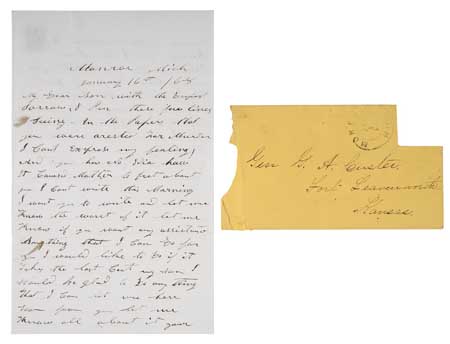 Monroe Mich
January 16th /68
My Dear Son with the
Sorrow I Pen these few lines
Seeing In the Papers that
you were arested for Murder
I Cant Express my feeling
And you how old
It Causes Mother to fret about
you I Cant write this Morning
I want you to write and let me
Know the worst of it let me
Know if you want my assistance
Anything that I Can Do for
you I would like to Do if it
Takes the last Cent my son I
would be glad to Do anything
that I Can let me here
from you let me
Know all about it your
Gen G. A. Custer.
Fort Leavenworth
Kansas.